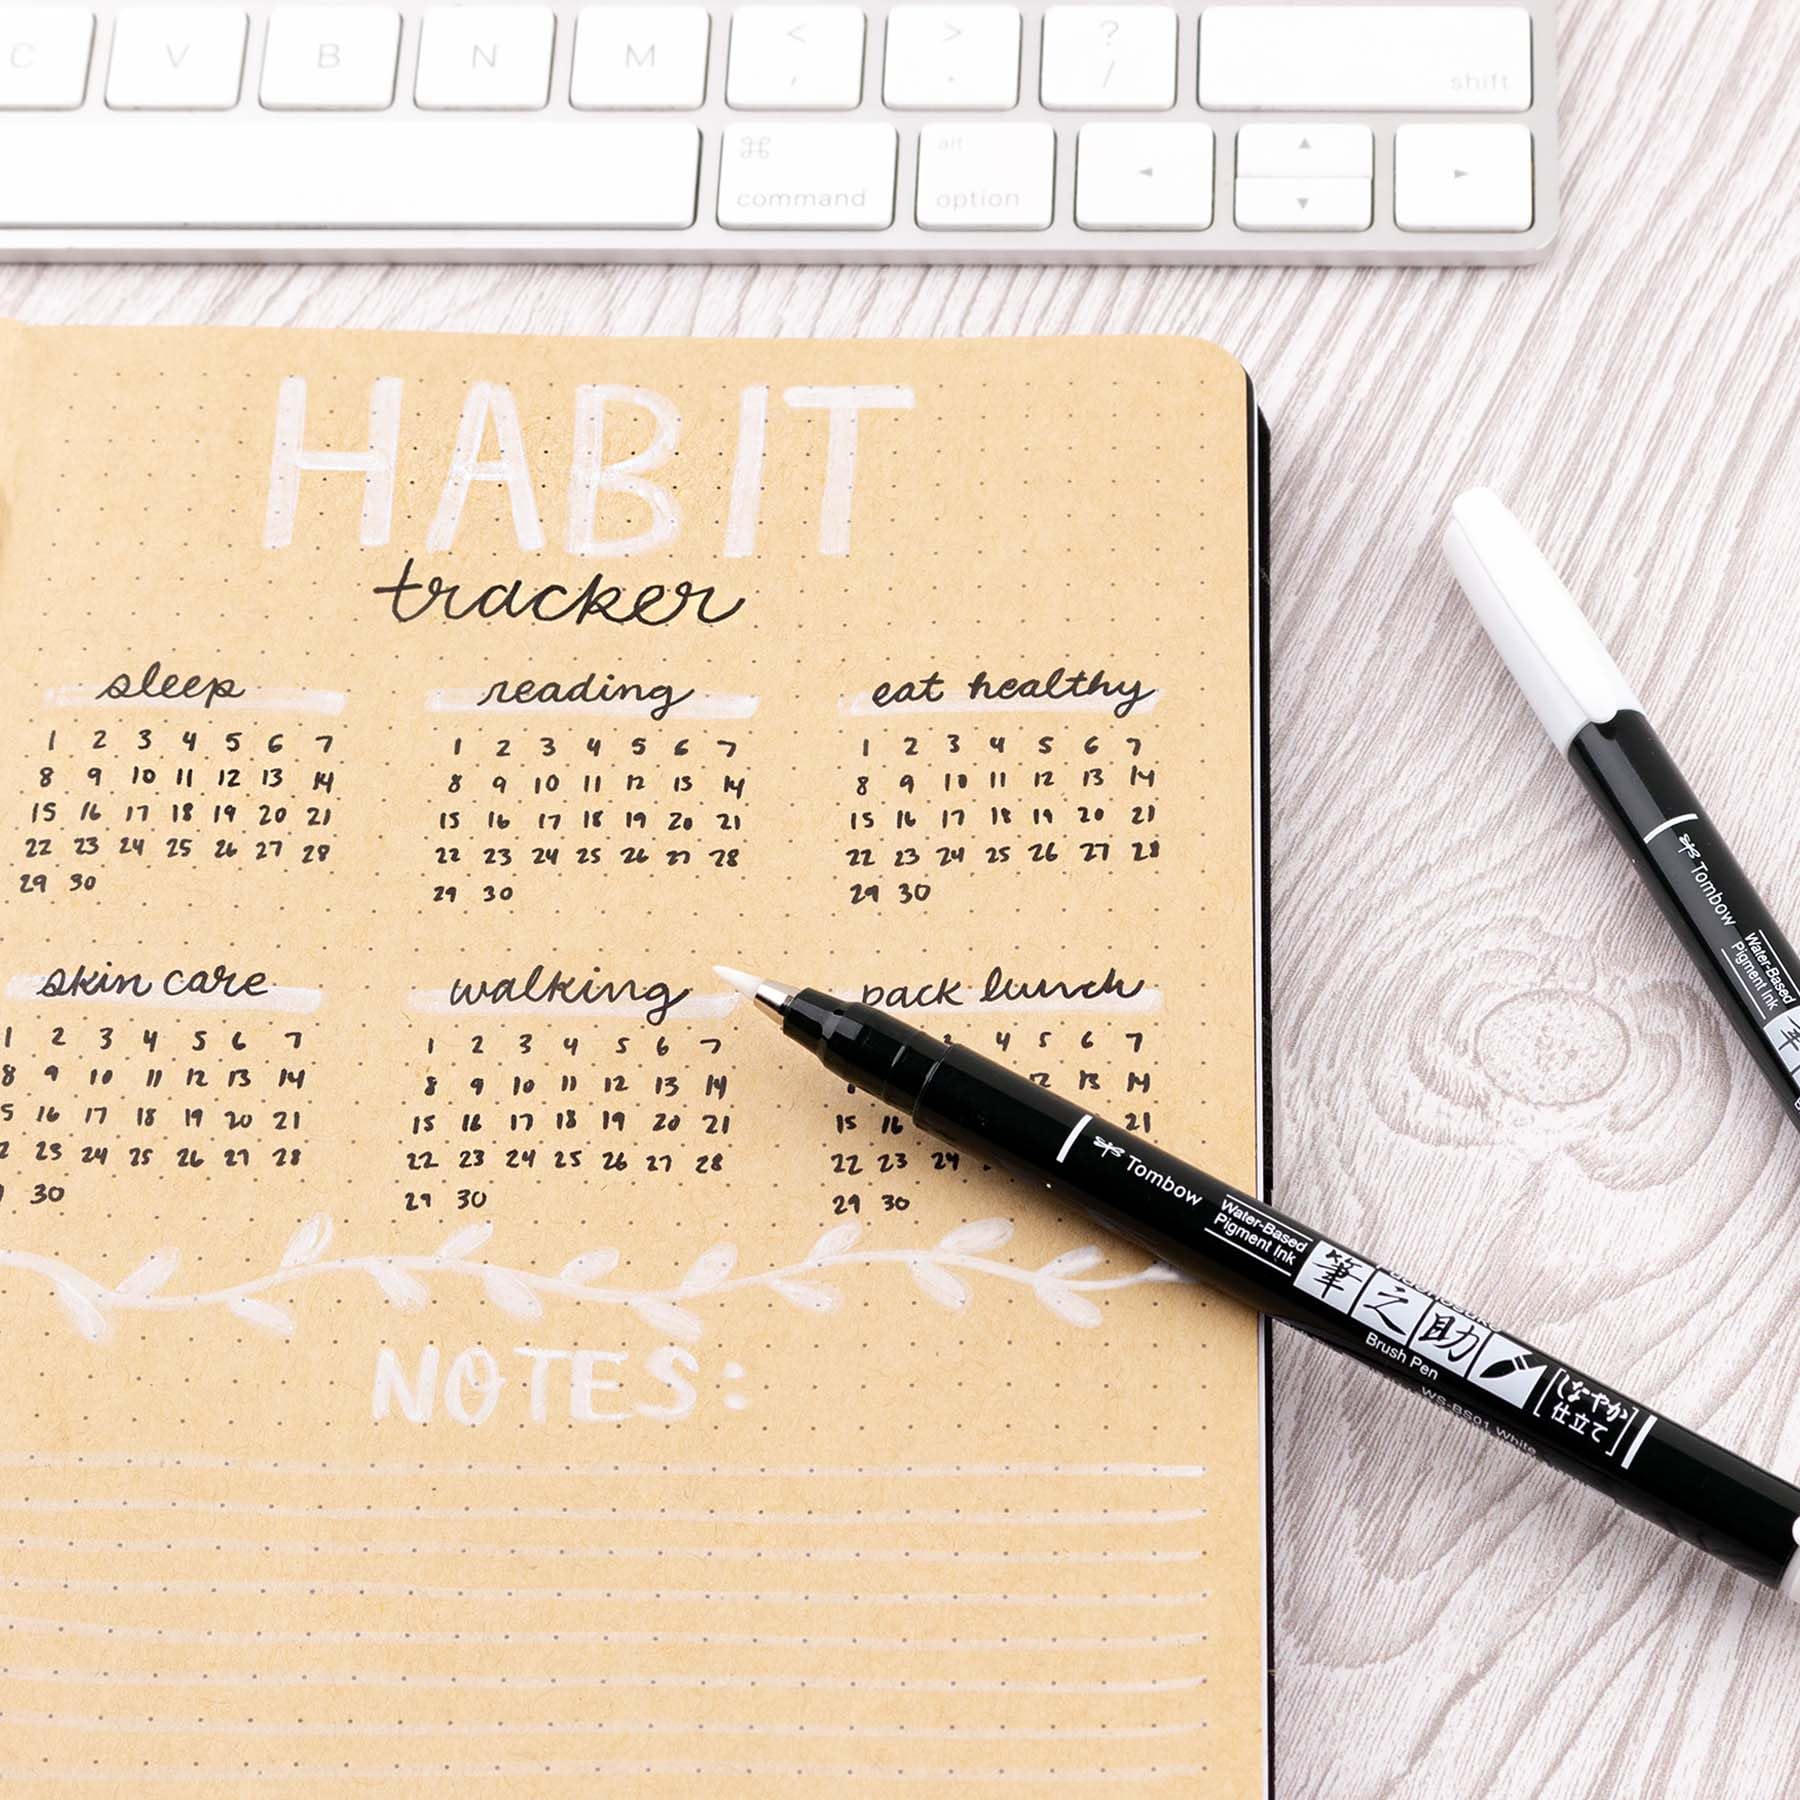 C V B N M < , > . ? / shift
⌘ command alt option ◄ ▲ ▼ ►
HABIT
tracker
sleep
1 2 3 4 5 6 7
8 9 10 11 12 13 14
15 16 17 18 19 20 21
22 23 24 25 26 27 28
29 30
reading
1 2 3 4 5 6 7
8 9 10 11 12 13 14
15 16 17 18 19 20 21
22 23 24 25 26 27 28
29 30
eat healthy
1 2 3 4 5 6 7
8 9 10 11 12 13 14
15 16 17 18 19 20 21
22 23 24 25 26 27 28
29 30
skin care
1 2 3 4 5 6 7
8 9 10 11 12 13 14
5 16 17 18 19 20 21
2 23 24 25 26 27 28
30
walking
1 2 3 4 5 6 7
8 9 10 11 12 13 14
15 16 17 18 19 20 21
22 23 24 25 26 27 28
29 30
pack lunch
4 5 6 7
13 14
15 16 21
22 23 24
29 30
NOTES:
Tombow
Water-Based
Pigment Ink
筆之助
Brush Pen
WS-BS01 White
しなやか
仕立て
Tombow
Water-Based
Pigment Ink